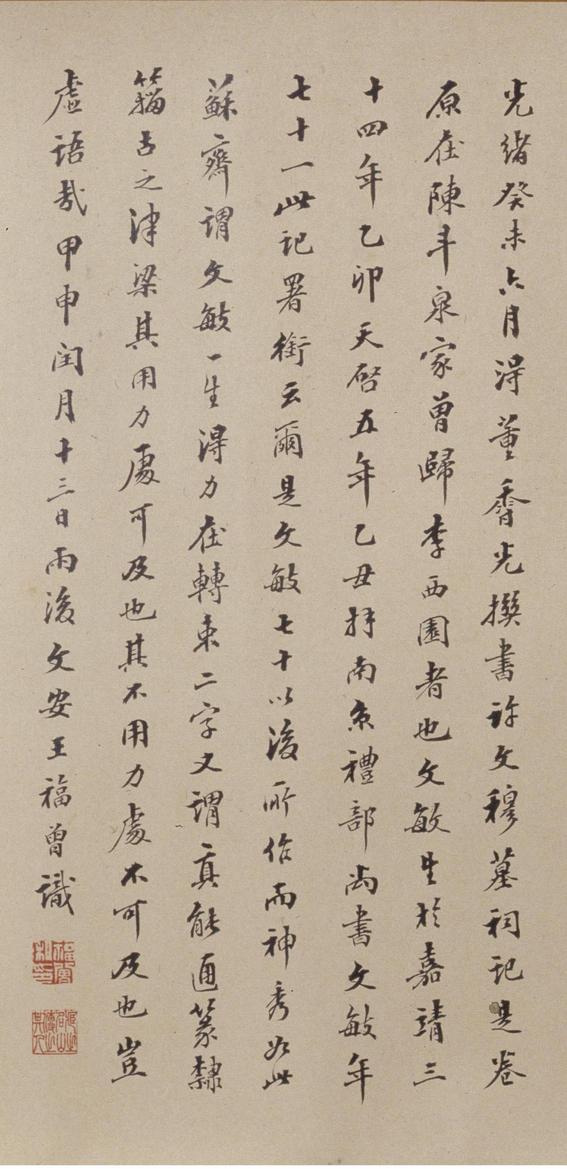 光緒癸未六月得董香光撰書許文穆墓祠記是卷
原在陳斗泉家曾歸李西園者也文敏生於嘉靖三
十四年乙卯天啓五年乙丑拜南京禮部尚書文敏年
七十一此記署銜云爾是文敏七十以後所作而神秀如此
蘇齋謂文敏一生得力在轉束二字又謂真能通篆隸
籀古之津梁其用力處可及也其不用力處不可及也豈
虛語哉甲申閏月十三日雨後文安王福曾識